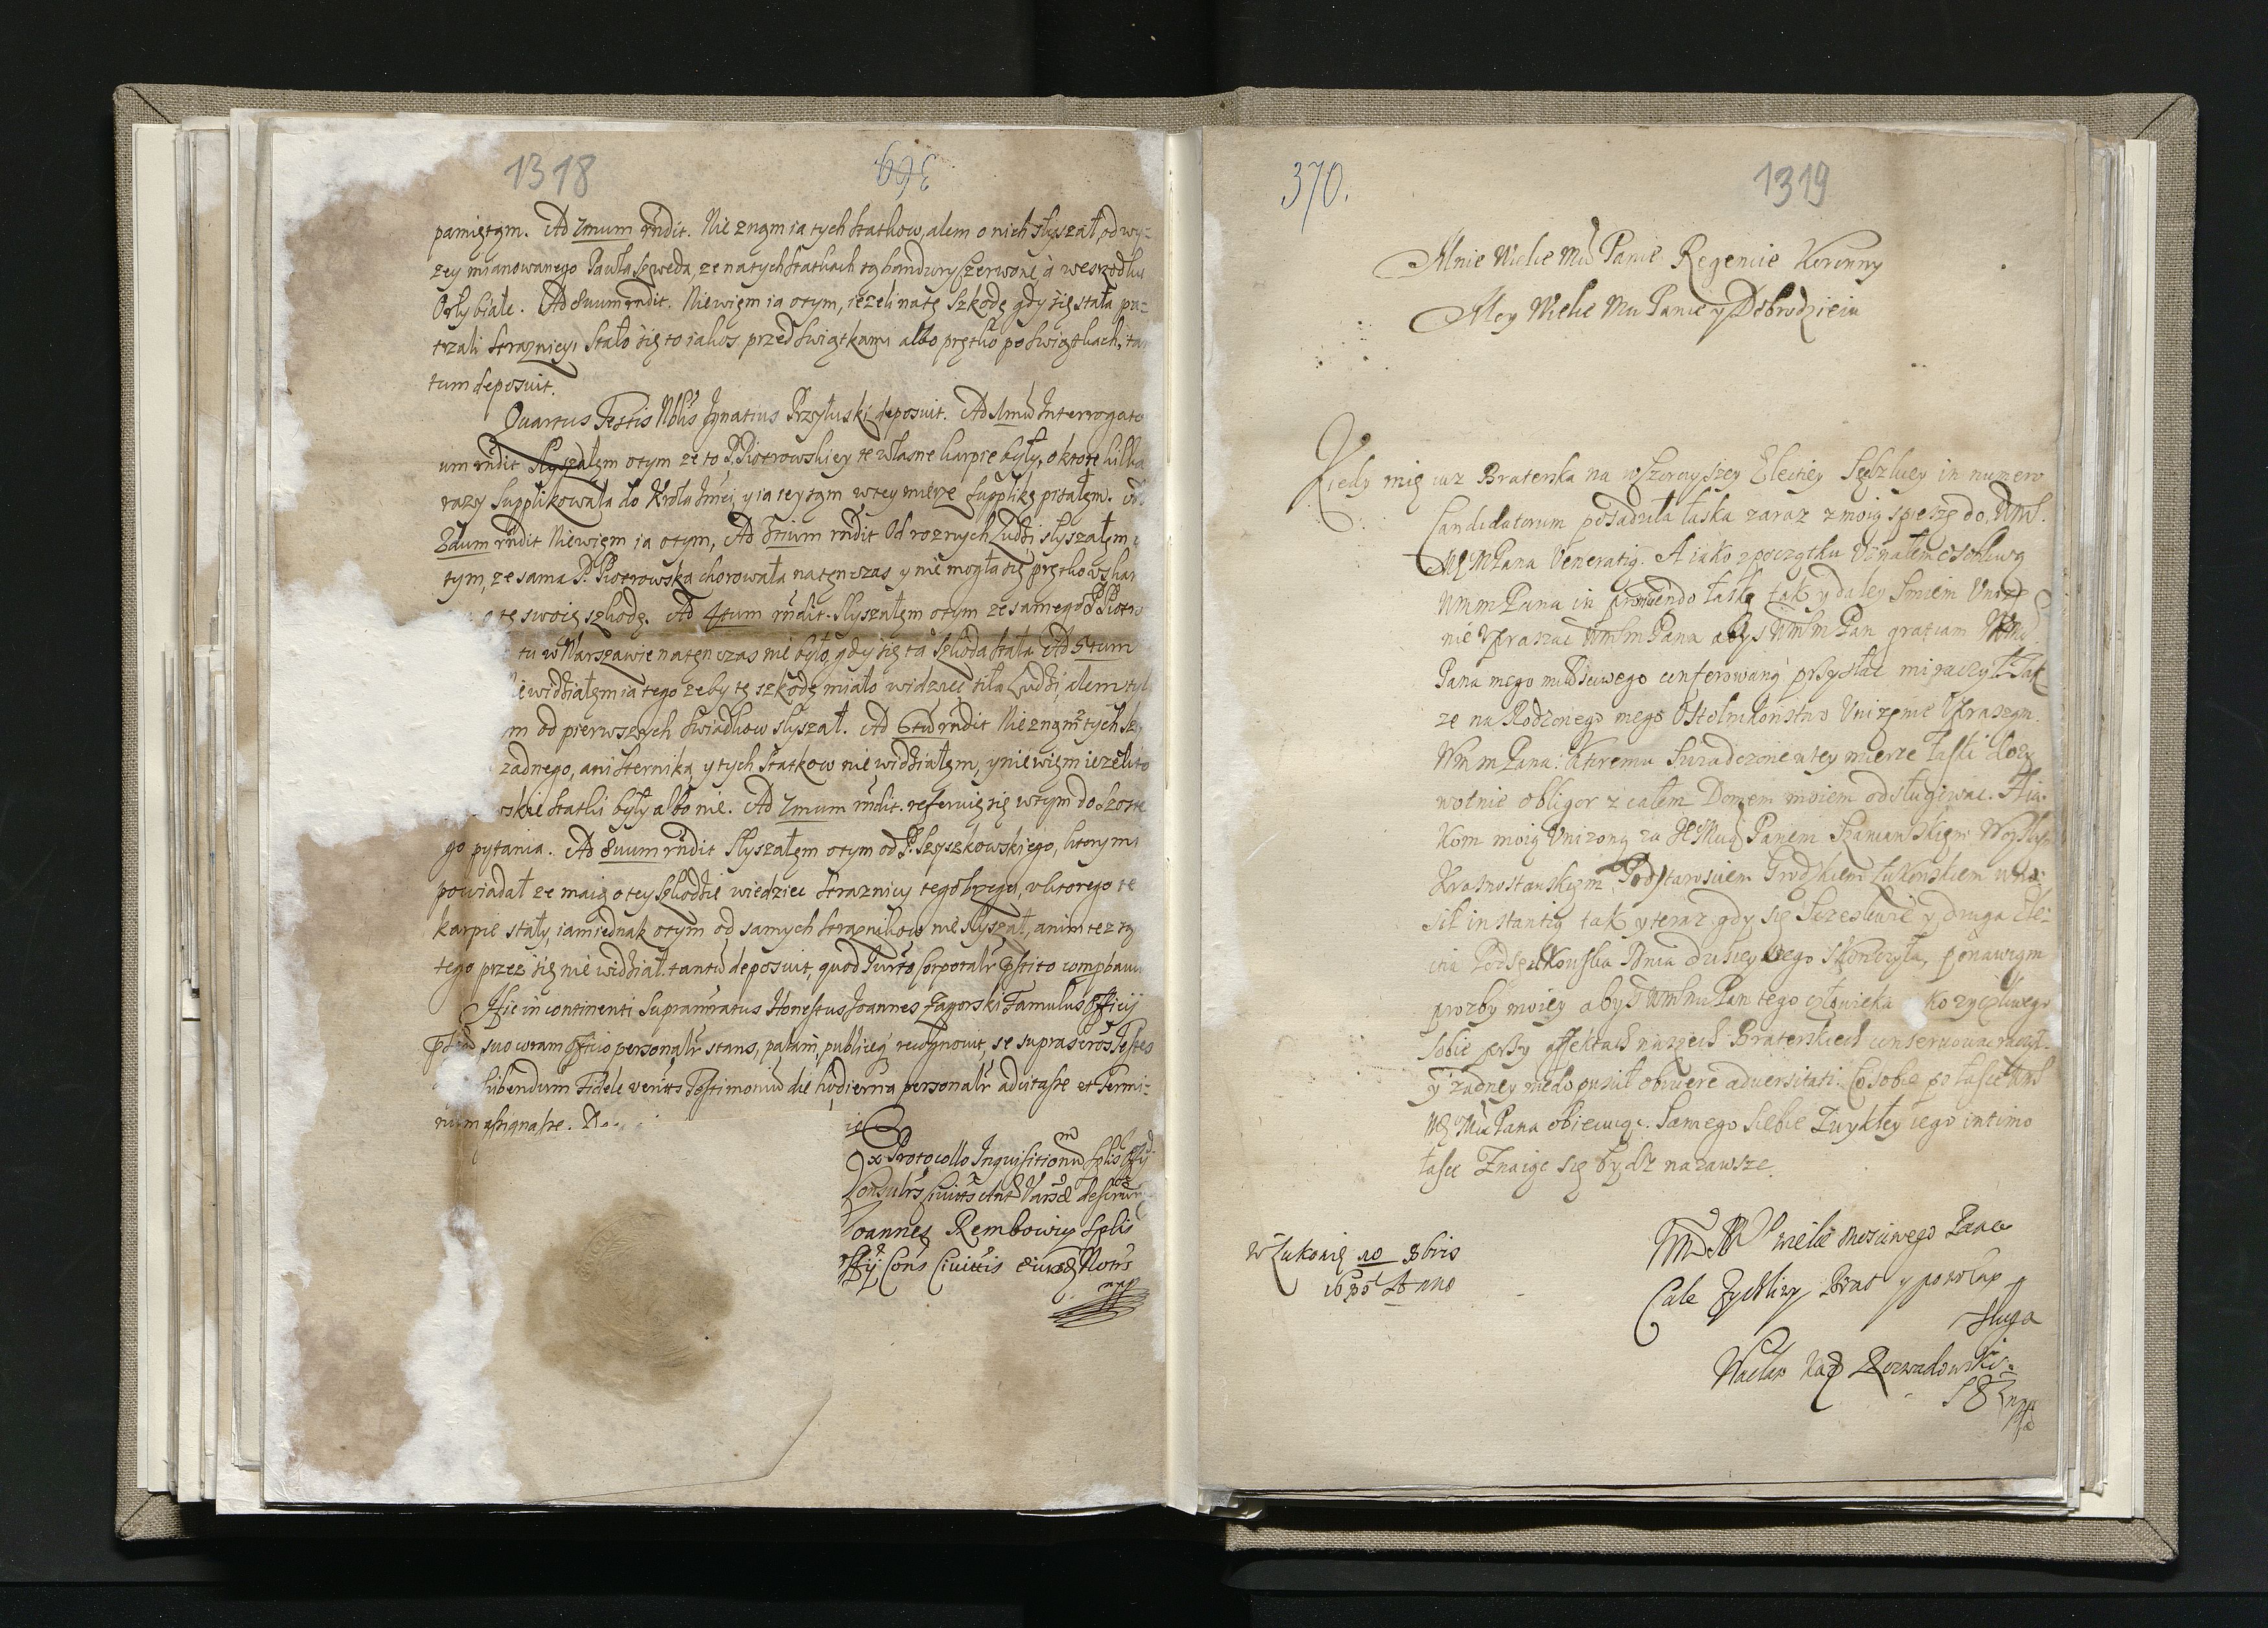 1318
369
pamiętam. Ad 7mum rndit. Nie znam ia tych statkow, alem o nich słyszał od wy-
zey mianowanego Pawła Szweda, ze na tych statkach są bandury czerwone, a weszrodku
Orły białe. Ad 8uum rndit. Niewiem ia otym, iezeli na tę szkodę gdy się stała pa-
trzali straznicy, stało się to iakos przed swiątkami albo prętko po swiątkach, tan
tum deposuit.
Quartus Testis Nblis Ignatius Przyłuski deposuit. Ad 1mu Interrogato
um rndit Słyszałem otym ze to P. Piotrowskiey te własne karpie były, o ktore kilka
razy supplikowała do Krola Jmci, y ia sey sam wtey mierze supplikę pisałem. Ad
2dum rndit Niewiem ia otym, Ad 3tium rndit Od roznych Ludzi słyszałem o
tym, ze sama P. Piotrowska chorowała natenczas y nie mogła się prętko uskar
o tę swoię szkodę. Ad 4tum rndit. Słyszałem otym ze samego P. Piotro
tu w Warszawie natenczas nie było, gdy się ta szkoda stała Ad 5tum
Niewidziałem ia tego zeby tę szkodę miało widziec siła Ludzi, alem tyl
m od pierwszych swiadkow słyszał. Ad 6tu rndit Nieznam tych
zadnego, ani sternika, y tych statkow nie widziałem, y niewiem iezeli to
skie statki były albo nie. Ad 7mum rndit. referuię się wtym do szoste
go pytania. Ad 8uum rndit Słyszałem otym od P. Szyszkowskiego, ktory mi
powiadał ze maią otey szkodzie wiedziec straznicy tego brzegu, uktorego te
karpie stały, iam iednak otym od samych straznikow nie słyszał, anim tez
tego przez się nie widział. tantu deposuit, quod Jurto Corporali pstito compbavit
Hic in continenti Supranratus Honestus Joannes Zagorski Famulus Officij
suo coram Officio personalr stans, palam, publiceq recognovit, se suprascros Testes
hibendum Fidele veritts Testimoniu die hodierna personalr adcitasse et Termi-
num assignasse.
Ex Protocollo Inquisitionu Splis Offij
Consulris Civitts Ant Varsae descript
Joannes Rembowicz Splis
Offij Cons Civittis eiusd Notrs
mpp
370.
1319
Mnie Wielce Mu Panie Regencie Koronny
Moy Wielce Mu Panie y Dobrodzieiu
Kiedy mię iuz Braterska na wszorayszey Electiey Sędskiey in numero
Candidatorum posadziła łaska zaraz z moią spieszę do WmS.
MęMPana Veneratią. A iako zpoczątku Uznałem osobliwą
WmmPana in promendo łaskę tak y daley smiem Unize
nie Upraszac WmSmPana abyś WmSm Pan gratiam
Pana mego miłosciwego conferowaną przysłac mi raczył. Tak
ze na Rodzonego mego o Stolnikonstwo Unizenie Upraszam
WmmPana: Ktoremu Swiadczone wtey mierze łaski dozy
wotnie obligor z całem Domem moiem odsługiwac. A ia-
kom moią Unizoną za JeMscią Panem Szaniawskiem Woyskim
Krasnostawskiem Podstarosciem Grodzkiem Łukowskiem wno-
sił instantią tak y teraz gdy się szczesliwie y druga Ele-
ctia Podsędkowska Dnia dzisieyszego skonczyła, ponawiam
prozby moiey abyś WmMu Pan tego człowieka ko zyczliwego
sobie przy affektach naszech Braterskiech conserwowac raczył.
y zadney niedopuscił obiuere adversitati. Co sobie po łasce WmS
MęMuPana obiecuiąc. Samego siebie Zwykłey iego intimo
łasce Znaige się bydz nazawsze.
WmMP wielce Mosciwego Pana
Cale Zyczliwy Brat y powolny
sługa
w Łukowie 10 8bris
Anno
Wacław Kaz Rozwadowski
S Z Ł
mpp